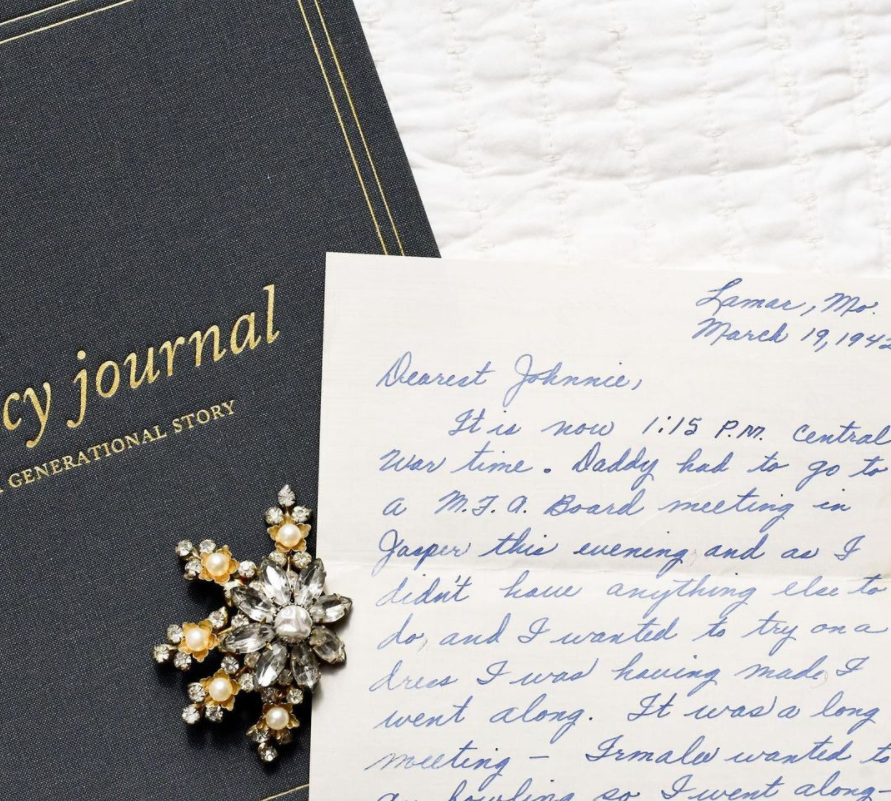 cy journal
A GENERATIONAL STORY
Lamar, Mo.
March 19, 1942
Dearest Johnnie,
It is now 1:15 P.M. Central
War time. Daddy had to go to
a M.F.A. Board meeting in
Jasper this evening and as I
didn't have anything else to
do, and I wanted to try on a
dress I was having made, I
went along. It was a long
meeting – Irmalee wanted to
go bowling so I went along–